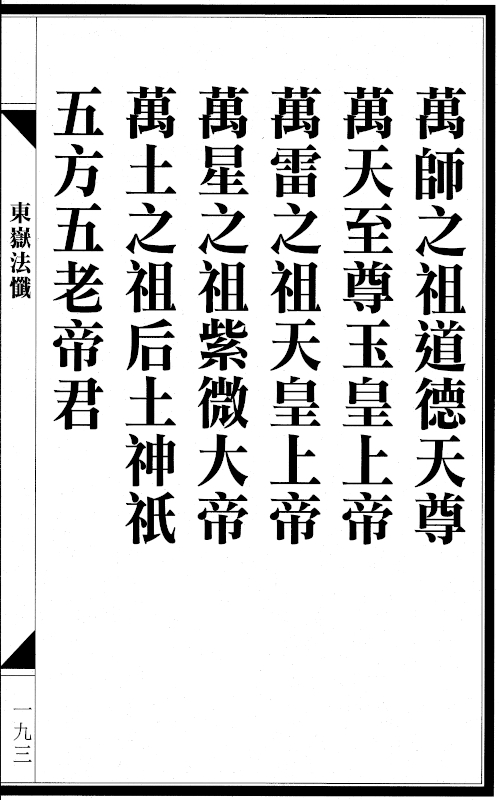 萬師之祖道德天尊
萬天至尊玉皇上帝
萬雷之祖天皇上帝
萬星之祖紫微大帝
萬土之祖后土神祇
五方五老帝君
東嶽法懺
一九三